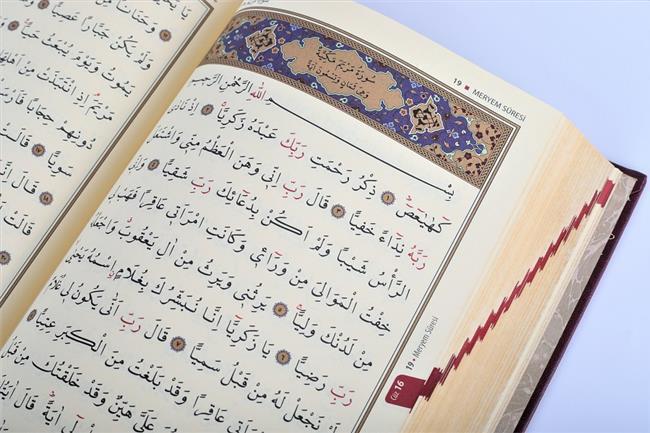 سُورَةُ مَرْيَمَ مَكِّيَّةٌ
وَهِيَ ثَمَانٍ وَتِسْعُونَ اٰيَةً
19 • MERYEM SÛRESİ
بِسْمِ اللّٰهِ الرَّحْمٰنِ الرَّحِيمِ
كٓهٰيٰعٓصٓ ۝١ ذِكْرُ رَحْمَتِ رَبِّكَ عَبْدَهُ زَكَرِيَّا ۝٢ اِذْ نَادٰى
رَبَّهُ نِدَٓاءً خَفِيًّا ۝٣ قَالَ رَبِّ اِنِّي وَهَنَ الْعَظْمُ مِنِّي وَاشْتَعَلَ
الرَّأْسُ شَيْبًا وَلَمْ اَكُنْ بِدُعَٓائِكَ رَبِّ شَقِيًّا ۝٤ وَاِنِّي
خِفْتُ الْمَوَالِيَ مِنْ وَرَٓاءِي وَكَانَتِ امْرَاَتِي عَاقِرًا فَهَبْ لِي
مِنْ لَدُنْكَ وَلِيًّا ۝٥ يَرِثُنِي وَيَرِثُ مِنْ اٰلِ يَعْقُوبَ وَاجْعَلْهُ
رَبِّ رَضِيًّا ۝٦ يَا زَكَرِيَّا اِنَّا نُبَشِّرُكَ بِغُلَامٍ اسْمُهُ يَحْيٰى
لَمْ نَجْعَلْ لَهُ مِنْ قَبْلُ سَمِيًّا ۝٧ قَالَ رَبِّ اَنّٰى يَكُونُ لِي غُلَامٌ
امْرَاَتِي عَاقِرًا وَقَدْ بَلَغْتُ مِنَ الْكِبَرِ عِتِيًّا
عَلَيَّ هَيِّنٌ وَقَدْ خَلَقْتُكَ مِنْ قَبْلُ
اٰيَةً قَالَ اٰيَتُكَ
Cüz 16
19 • Meryem Sûresi
يَا
وَحَنَانًا مِنْ
وَلَمْ يَكُنْ جَبَّارًا عَصِيًّا
يَمُوتُ وَيَوْمَ يُبْعَثُ حَيًّا
مَرْيَمَ اِذِ انْتَبَذَتْ مِنْ اَهْلِهَا
دُونِهِمْ حِجَابًا فَاَرْسَلْنَا
سَوِيًّا ۝١٧ قَالَتْ
۝١٨ قَالَ اِنَّمَا
قَالَتْ